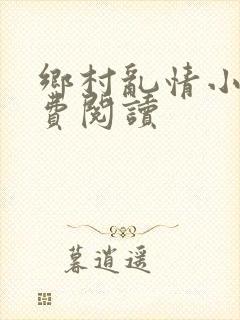 鄉村亂情小
費閱讀
暮逍遥